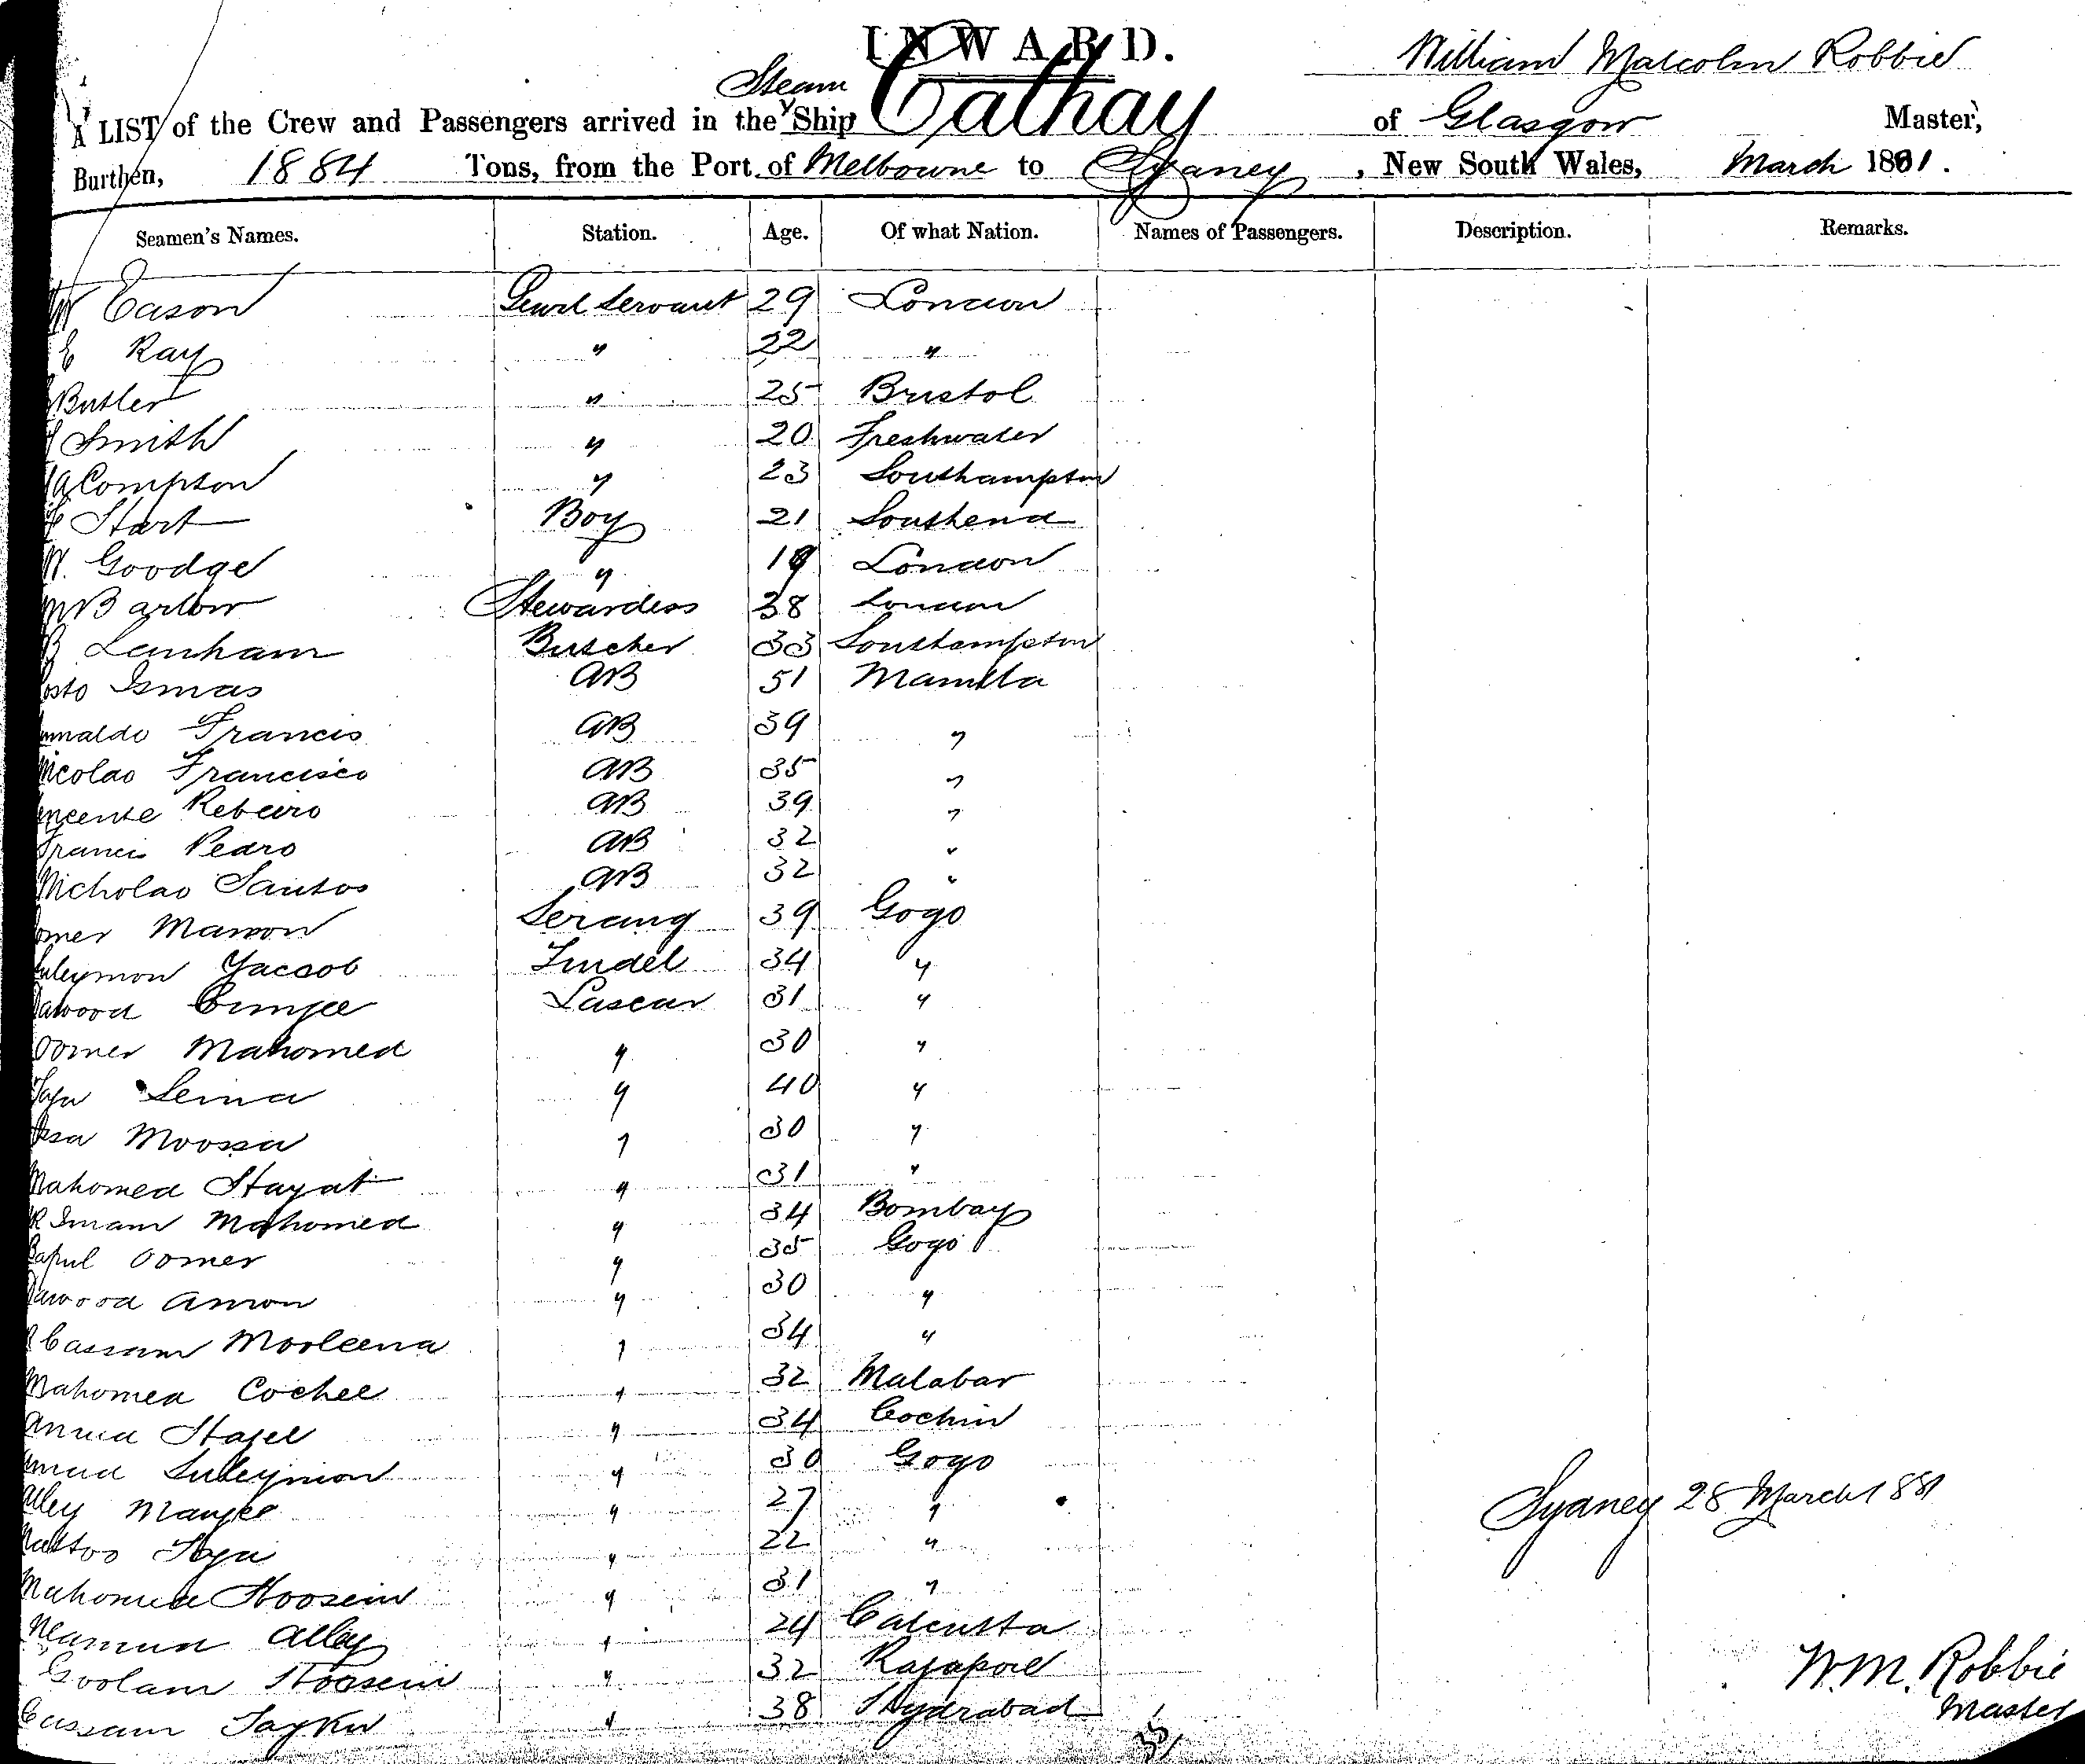 INWARD.
William Malcolm Robbie
Steam
A LIST of the Crew and Passengers arrived in the Ship Cathay of Glasgow Master,
Burthen, 1884 Tons, from the Port of Melbourne to Sydney, New South Wales, March 1881.
Seamen's Names. Station. Age. Of what Nation. Names of Passengers. Description. Remarks.
Eason Genl Servant 29 London
E Ray " 22 "
Butler " 25 Bristol
Smith " 20 Freshwater
Compton " 23 Southampton
Start Boy 21 Southend
W. Goodge " 19 London
M Barlow Stewardess 38 London
B Lanham Butcher 33 Southampton
Ismas AB 51 Manilla
Francis AB 39 "
Nicolao Francisco AB 35 "
Rebeiro AB 39 "
Francis Pedro AB 32 "
Nicholao Santos AB 32 "
Oomer Mamon Serang 39 Gogo
Suleymon Yacoob Tindel 34 "
Dawood Lascar 31 "
Oomer Mahomed " 30 "
" 40 "
Esa Moossa " 30 "
Mahomed Hayat " 31 "
Imam Mahomed " 34 Bombay
Oomer " 35 Gogo
Dawood Amon " 30 "
Cassam Mooleena " 34 "
Mahomed Cochee " 32 Malabar
" 34 Cochin
Suleymon " 30 Gogo
Alley Manjee " 27 "
" 22 "
Mahomed Hoosein " 31 "
Alley " 24 Calcutta
Goolam Hoosein " 32 Rajapore
Cassam " 38 Hydrabad
35
Sydney 28 March 1881
W.M. Robbie
Master